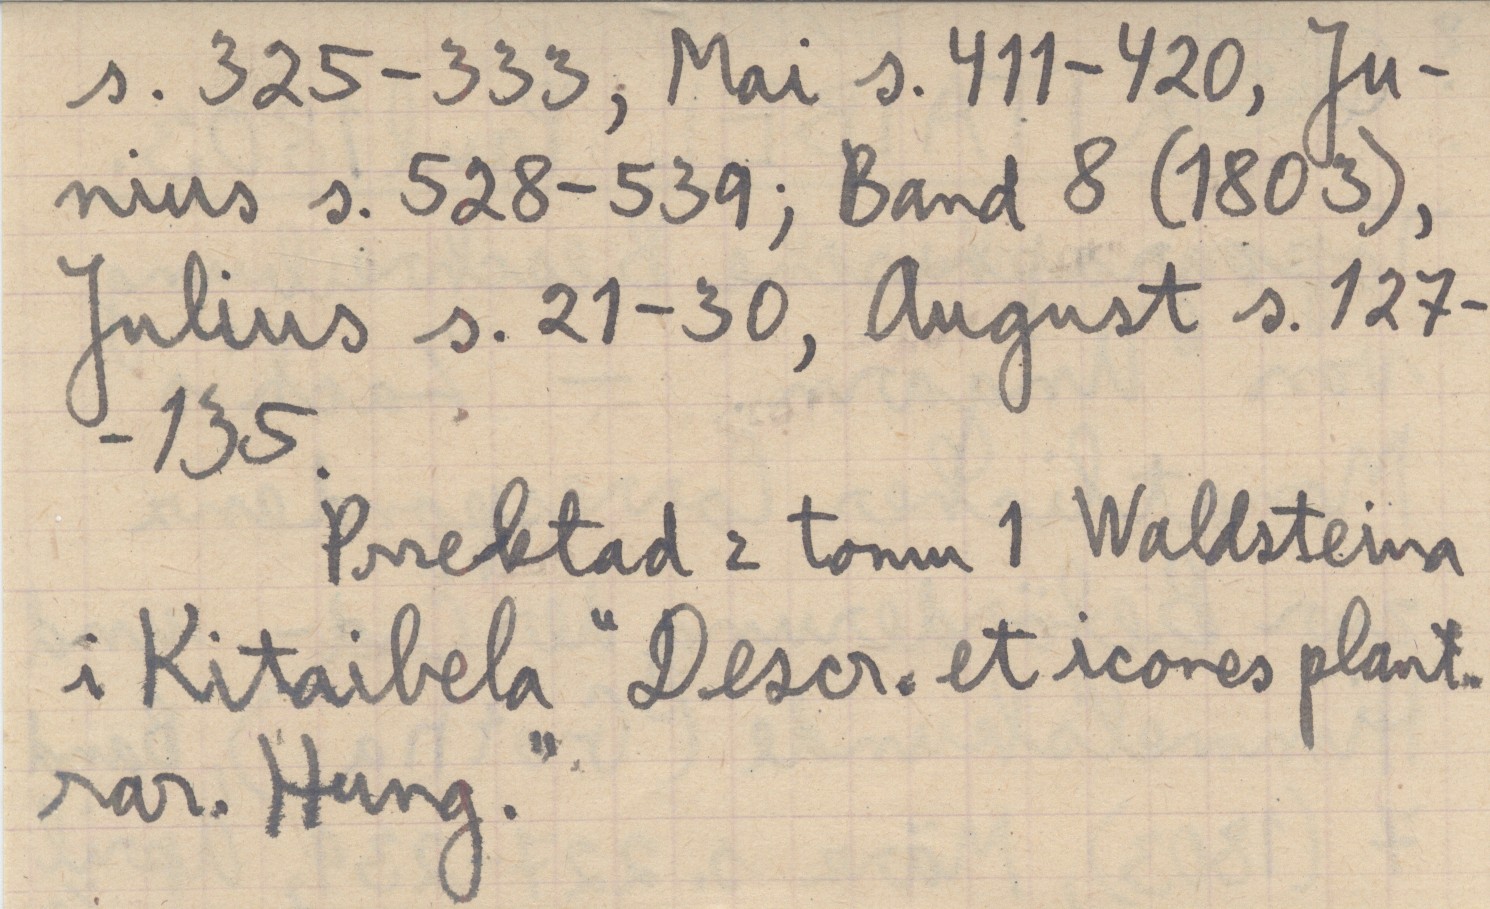 s. 325-333, Mai s. 411-420, Ju-
nius s. 528-539; Band 8 (1803),
Julius s. 21-30, August s. 127-
-135.
Przekład z tomu 1 Waldsteina
i Kitaibela "Descr. et icones plant.
rar. Hung."